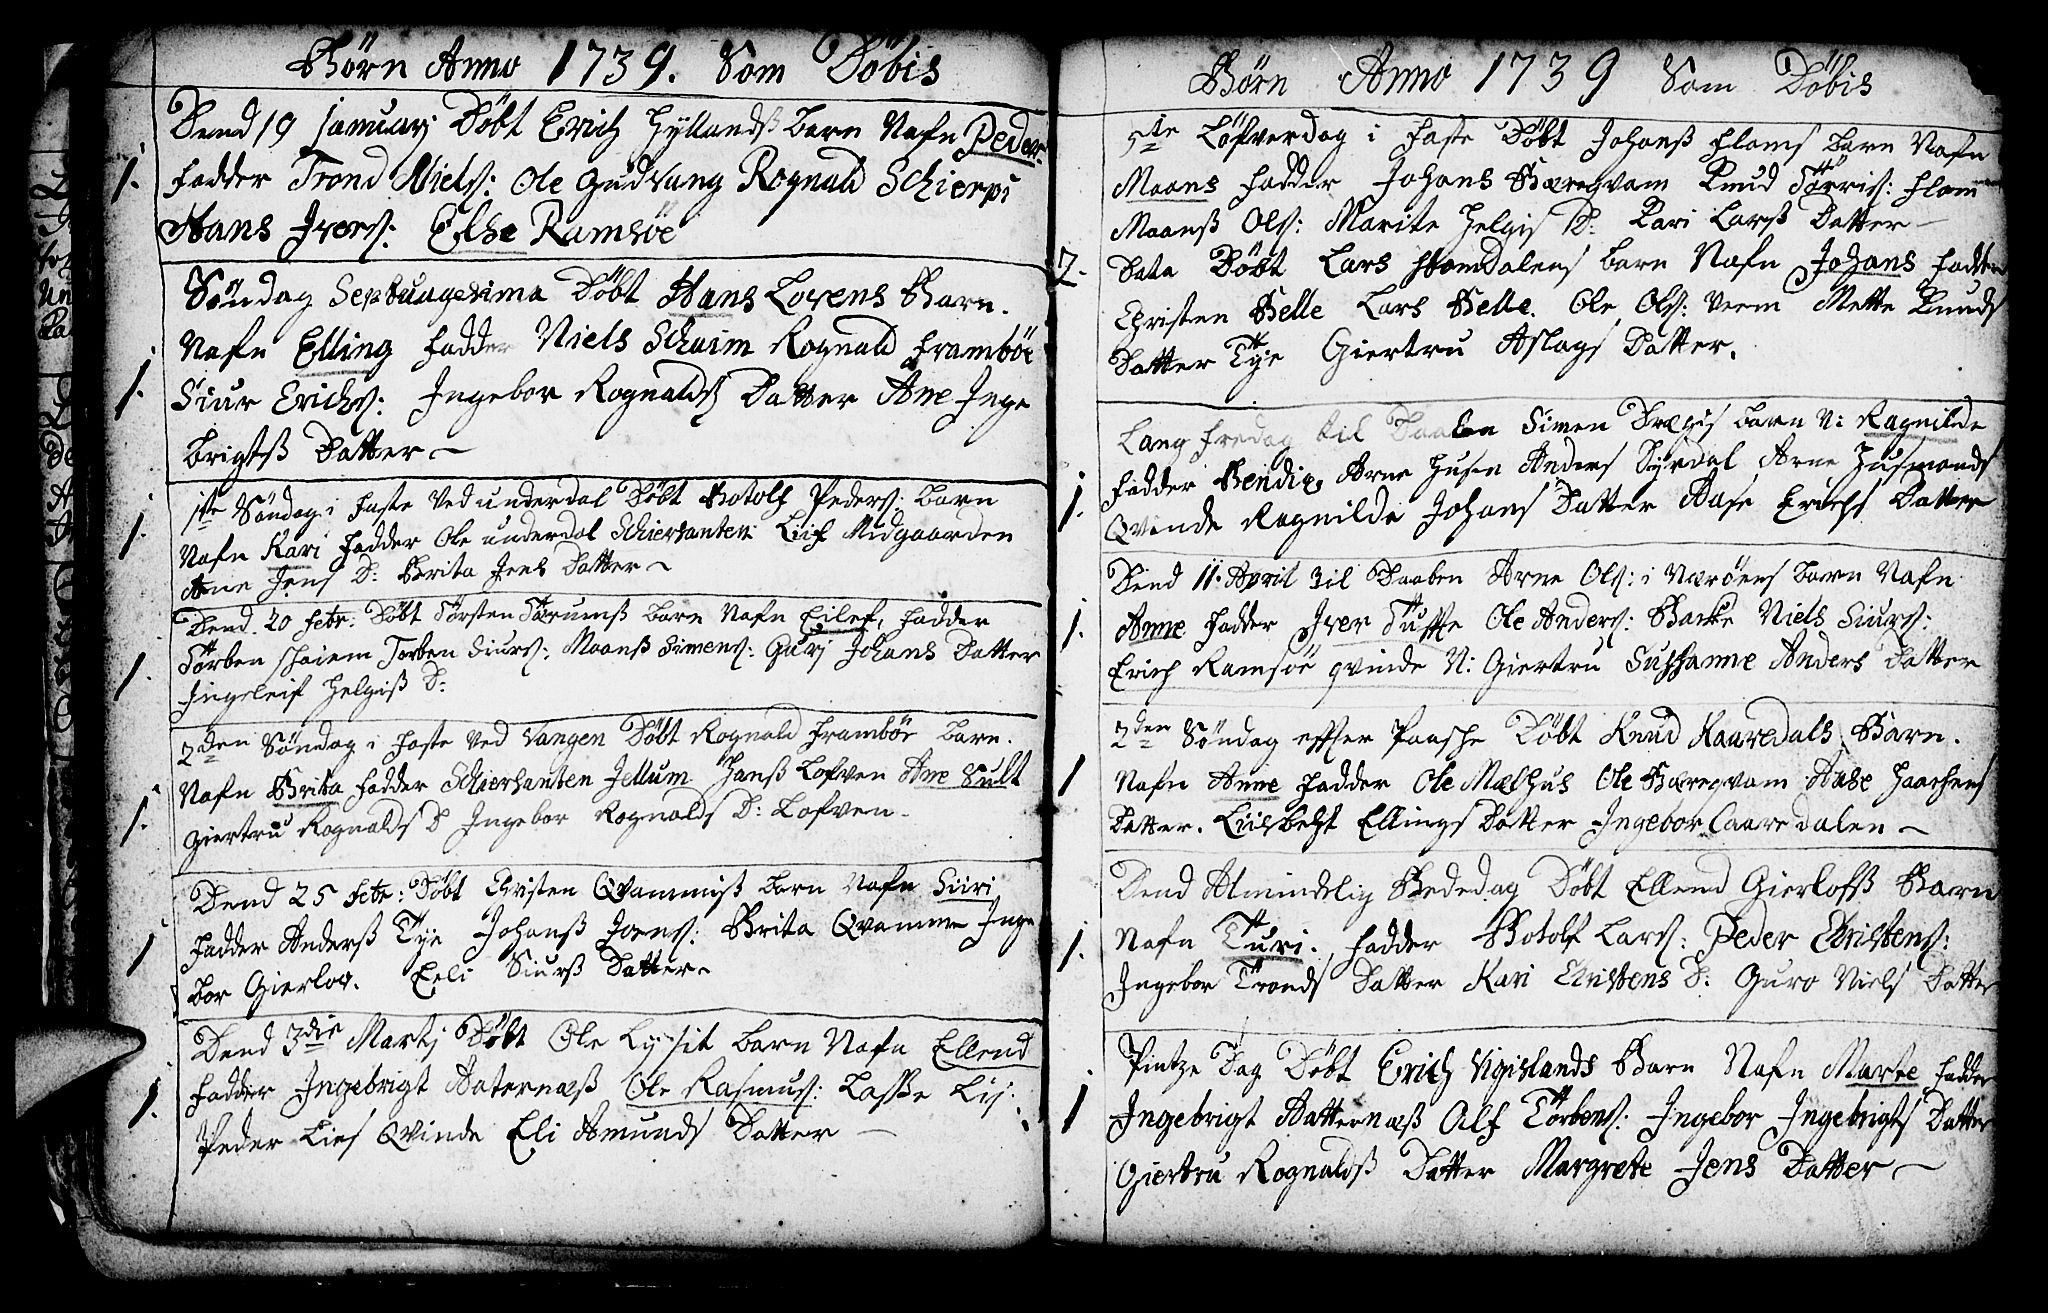 Börn Anno 1739. Som Döbis
Dend 19 januarj Döbt Erich Hyllandß barn Nafn Peder
1. fadder Trond Niels: Ole Gudvang Rognald Schierpi
Hans Ivers: Else Ramsöe
Söndag Septuagesima Döbt Hans Lovens Barn.
Nafn Elling fadder Niels Schaim Rognald Framböe
1. Siur Erichs: Ingebor Rognalds Datter Ane Inge
brigtß Datter
1ste Söndag i faste Ved underdal Döbt Botolf Peders: barn
1. Nafn Kari fadder Ole underdal Schiersanten Leif Midgaarden
Ane Jens D: Brita Jens Datter
Dend 20 febr: Döbt Törsten Tærumß barn Nafn Eilef, fadder
1. Törben Schaiem Torben Siurs: Maanß Simens: Gurj Johans Datter
Ingeleif Helgiß D:
2den Söndag i faste Ved Vangen Döbt Rognald Framböe barn.
1. Nafn Brita fadder Schiersanten Jellum Hanß Lofven Ane Sult
Giertru Rognalds D Ingebor Rognalds D: Lofven.
Dend 25 febr: Döbt Christen Qvammiß barn Nafn Siiri
1 fadder Anderß Tye Johanß Joens: Brita Qvamme Inge
bor Gierlov. Eeli Siurß Datter
Dend 3die Martj Döbt Ole Lysit barn Nafn Ellend
1. fadder Ingebrigt Aaternæß Ole Rasmus: Lasse Lis:
Peder Lies Qvinde Eli Amunds Datter
Börn Anno 1739 Som Döbis
5te Löfverdag i faste Döbt Johanß Flams barn Nafn
Maans fadder Johans Bæreqvam Knud Törris: Flam
Maanß Ols: Marite Helgis D: Kari Larß Datter
2. Dato Döbt Lars Homdalens barn Nafn Johans fadder
Christen Belle Lars Belle. Ole Ols: Veem Mette Knuds
Datter Tye Giertru Aslags Datter.
Lang fredag til Daaben Simen Drægis barn N: Ragnilde
1. fadder Bendix Arne Husen Anders Dyrdal Arne Husmands
Qvinde Ragnilde Johans Datter Aase Erichs Datter
Dend 11. April til Daaben Arne Ols: i Nærøens barn Nafn
1. Anne fadder Iver Tuffte Ole Anders: Backe Niels Siurs:
Erich Ramsöe qvinde N: Giertru Sussanne Anders Datter
2den Söndag effter Paasche Döbt Knud Kaaredals Barn.
1 Nafn Anne fadder Ole Melhus Ole Bæreqvam Aase Haachens
Datter. Liisbeht Ellings Datter Ingebor Caaredalen
Dend Almindelig Bededag Döbt Ellend Gierlofß Barn
1. Nafn Turi. fadder Botolf Lars: Peder Christens:
Ingebor Tronds Datter Kari Christens D: Guro Niels Datter
Pintze Dag Döbt Erich Vigislands Barn Nafn Marte fadder
1 Ingebrigt Aatternæß Alf Törbens: Ingebor Ingebrigts Datter
Giertru Rognaldß Datter Margrete Jens Datter